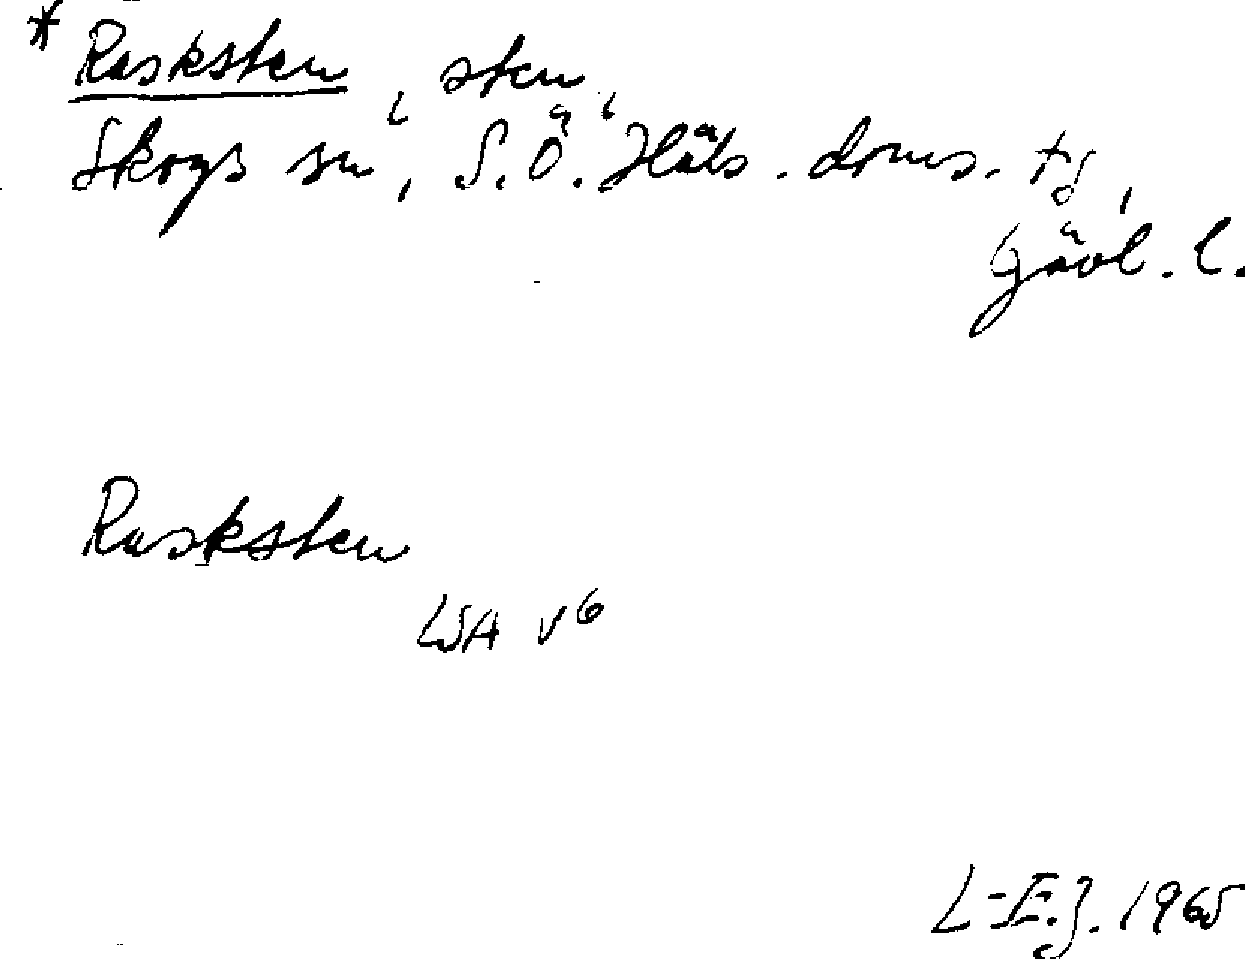 * Rasksten, sten,
Skogs sn, S. Ö. Häls. doms. tg,
Gävl. l.
Rasksten
LSA v6
L-E.J. 1965